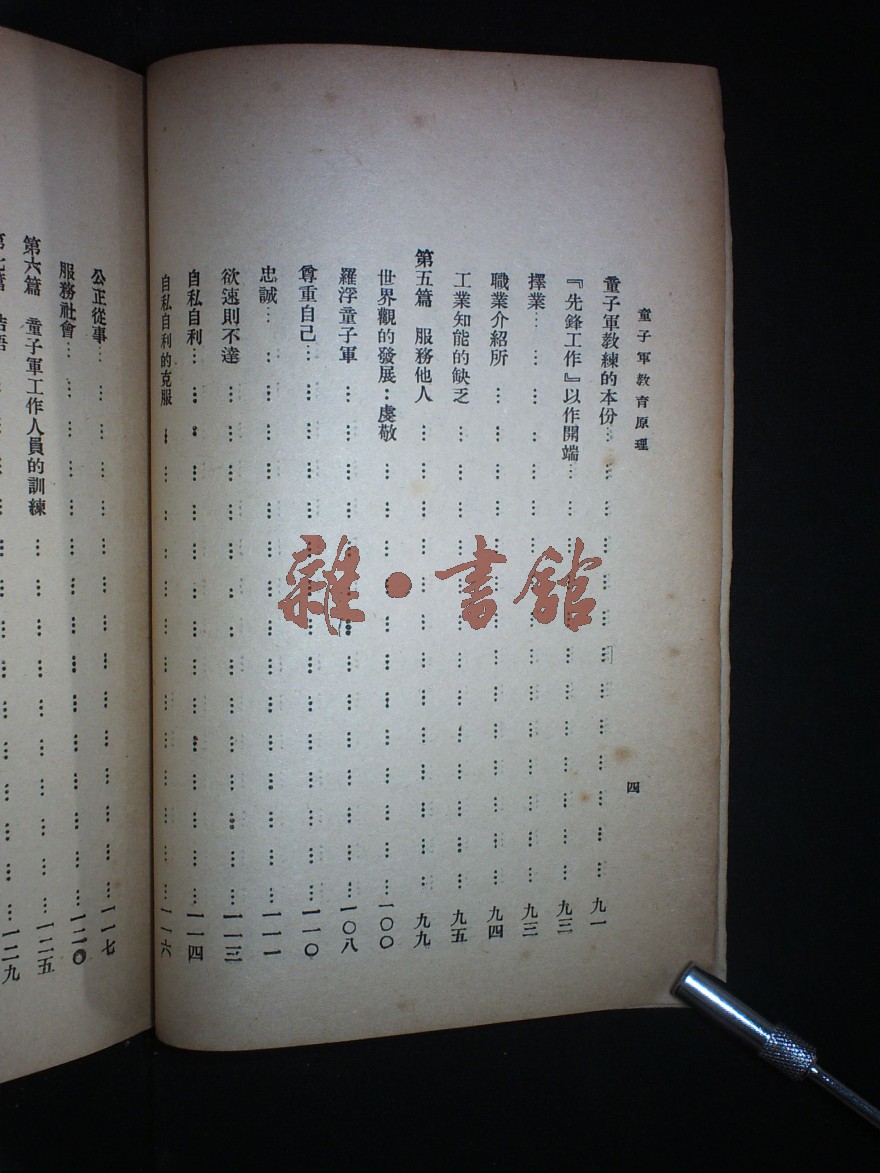 童子軍教育原理
四
童子軍教練的本份… … … … … … … … … … … … 九一
『先鋒工作』以作開端… … … … … … … … … … … 九三
擇業… … … … … … … … … … … … … … 九三
職業介紹所 … … … … … … … … … … … … … 九四
工業知能的缺乏 … … … … … … … … … … … … 九五
第五篇 服務他人 … … … … … … … … … … … … 九九
世界觀的發展：虔敬 … … … … … … … … … … … 一〇〇
羅浮童子軍 … … … … … … … … … … … … … 一〇八
尊重自己… … … … … … … … … … … … … … 一一〇
忠誠… … … … … … … … … … … … … … … 一一一
欲速則不達 … … … … … … … … … … … … … 一一三
自私自利… … … … … … … … … … … … … … 一一四
自私自利的克服 … … … … … … … … … … … … 一一六
公正從事… … … … … … … … … … … … … … 一一七
服務社會… … … … … … … … … … … … … … 一二〇
第六篇 童子軍工作人員的訓練 … … … … … … … … … 一二五
第七篇 結語 … … … … … … … … … … … … … 一二九
雜·書館